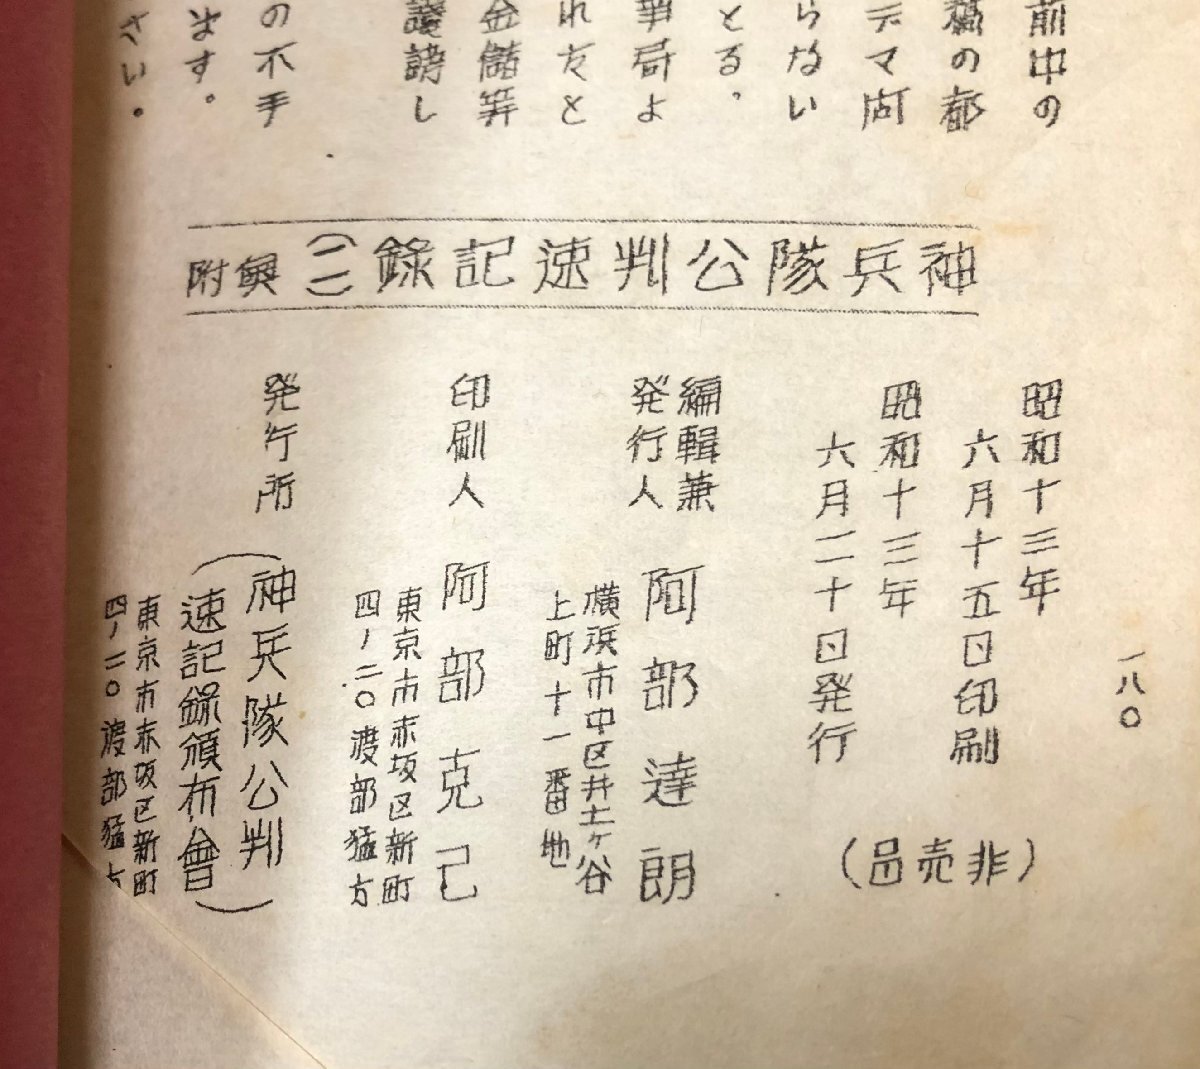 前中の
の都
デマ向
らない
とる、
事局よ
れたと
金儲等
し
の不手
ます。
さい。
神兵隊公判速記録(二)奥附
一八〇
昭和十三年
六月十五日印刷
昭和十三年
六月二十日発行
(非売品)
編輯兼
発行人
阿部達朗
横浜市中区井土ヶ谷
上町十一番地
印刷人
阿部克己
東京市赤坂区新町
四ノ二〇渡部猛方
発行所
(神兵隊公判
速記録頒布會)
東京市赤坂区新町
四ノ二〇渡部猛方